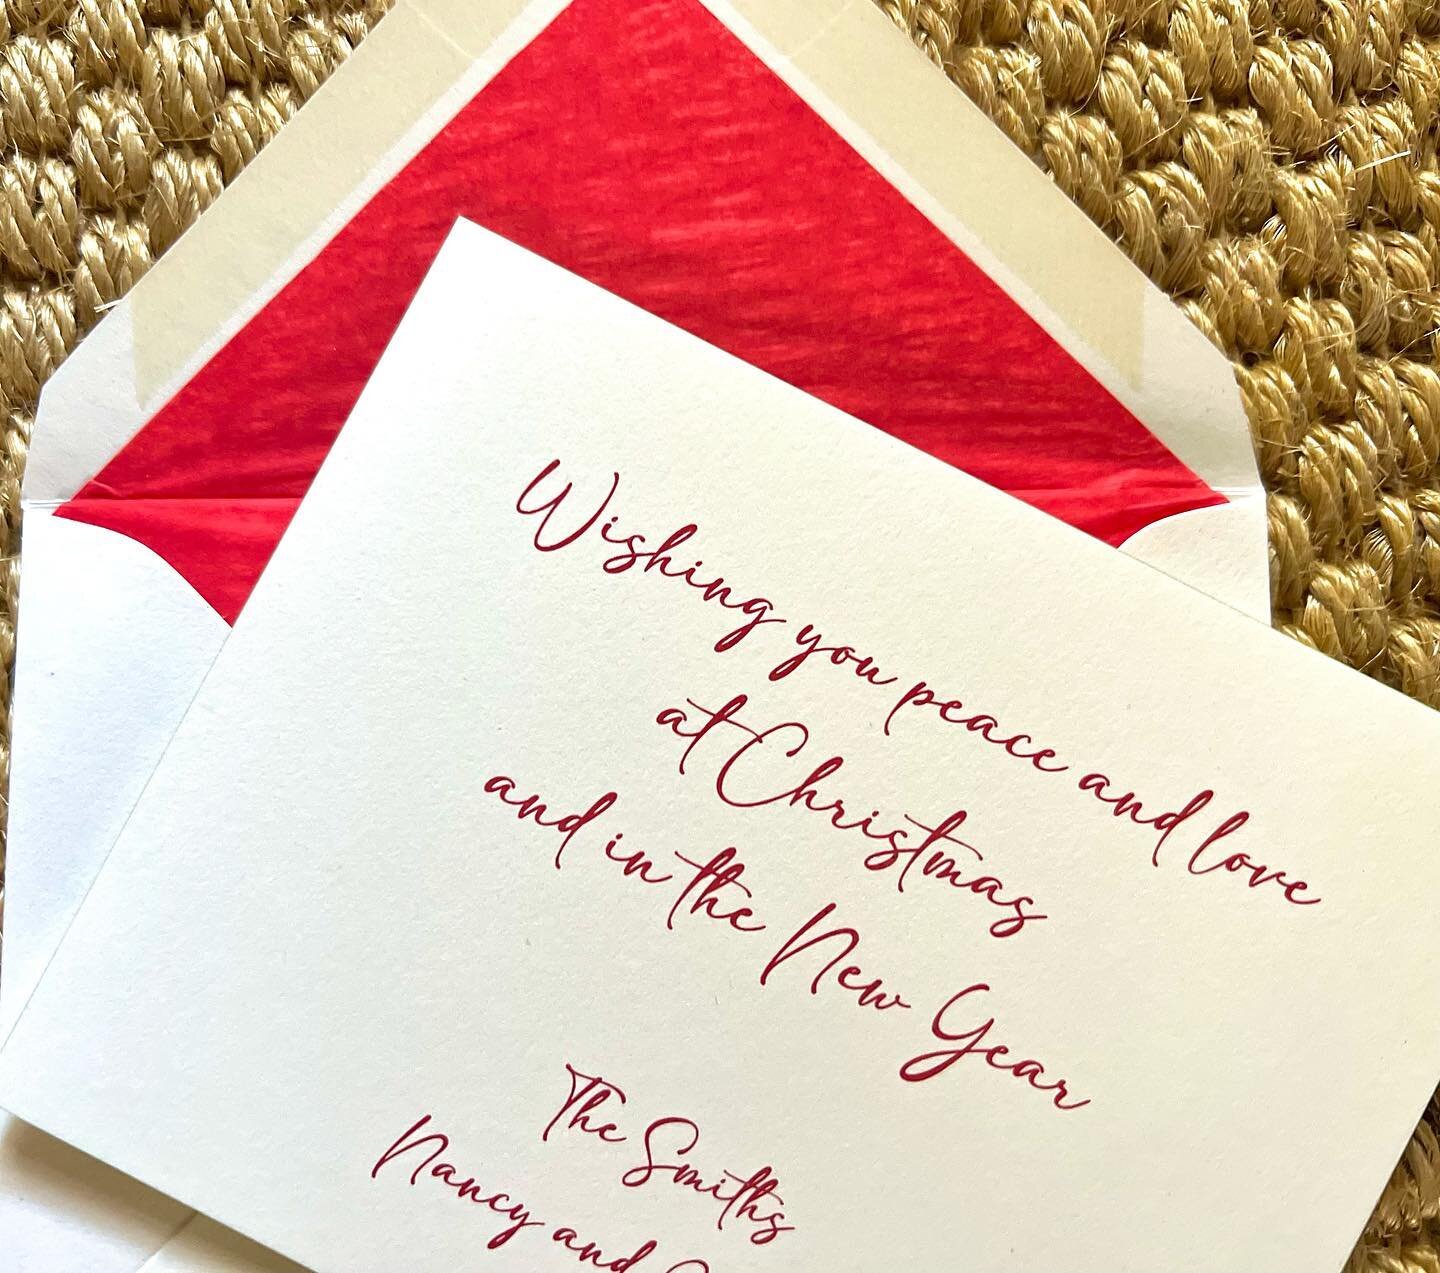 Wishing you peace and love
at Christmas
and in the New Year
The Smiths
Nancy and